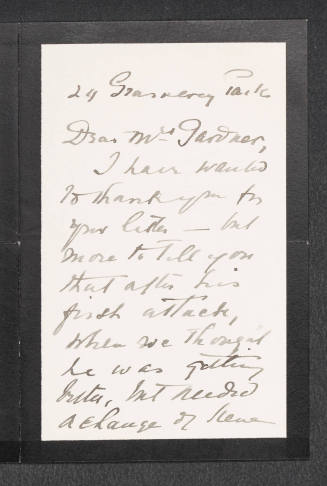 24 Gramercy Park
Dear Mrs. Gardner,
I have wanted
to thank you for
your letter – but
more to tell you
that after his
first attack,
when we thought
he was getting
better, but needed
a change of scene